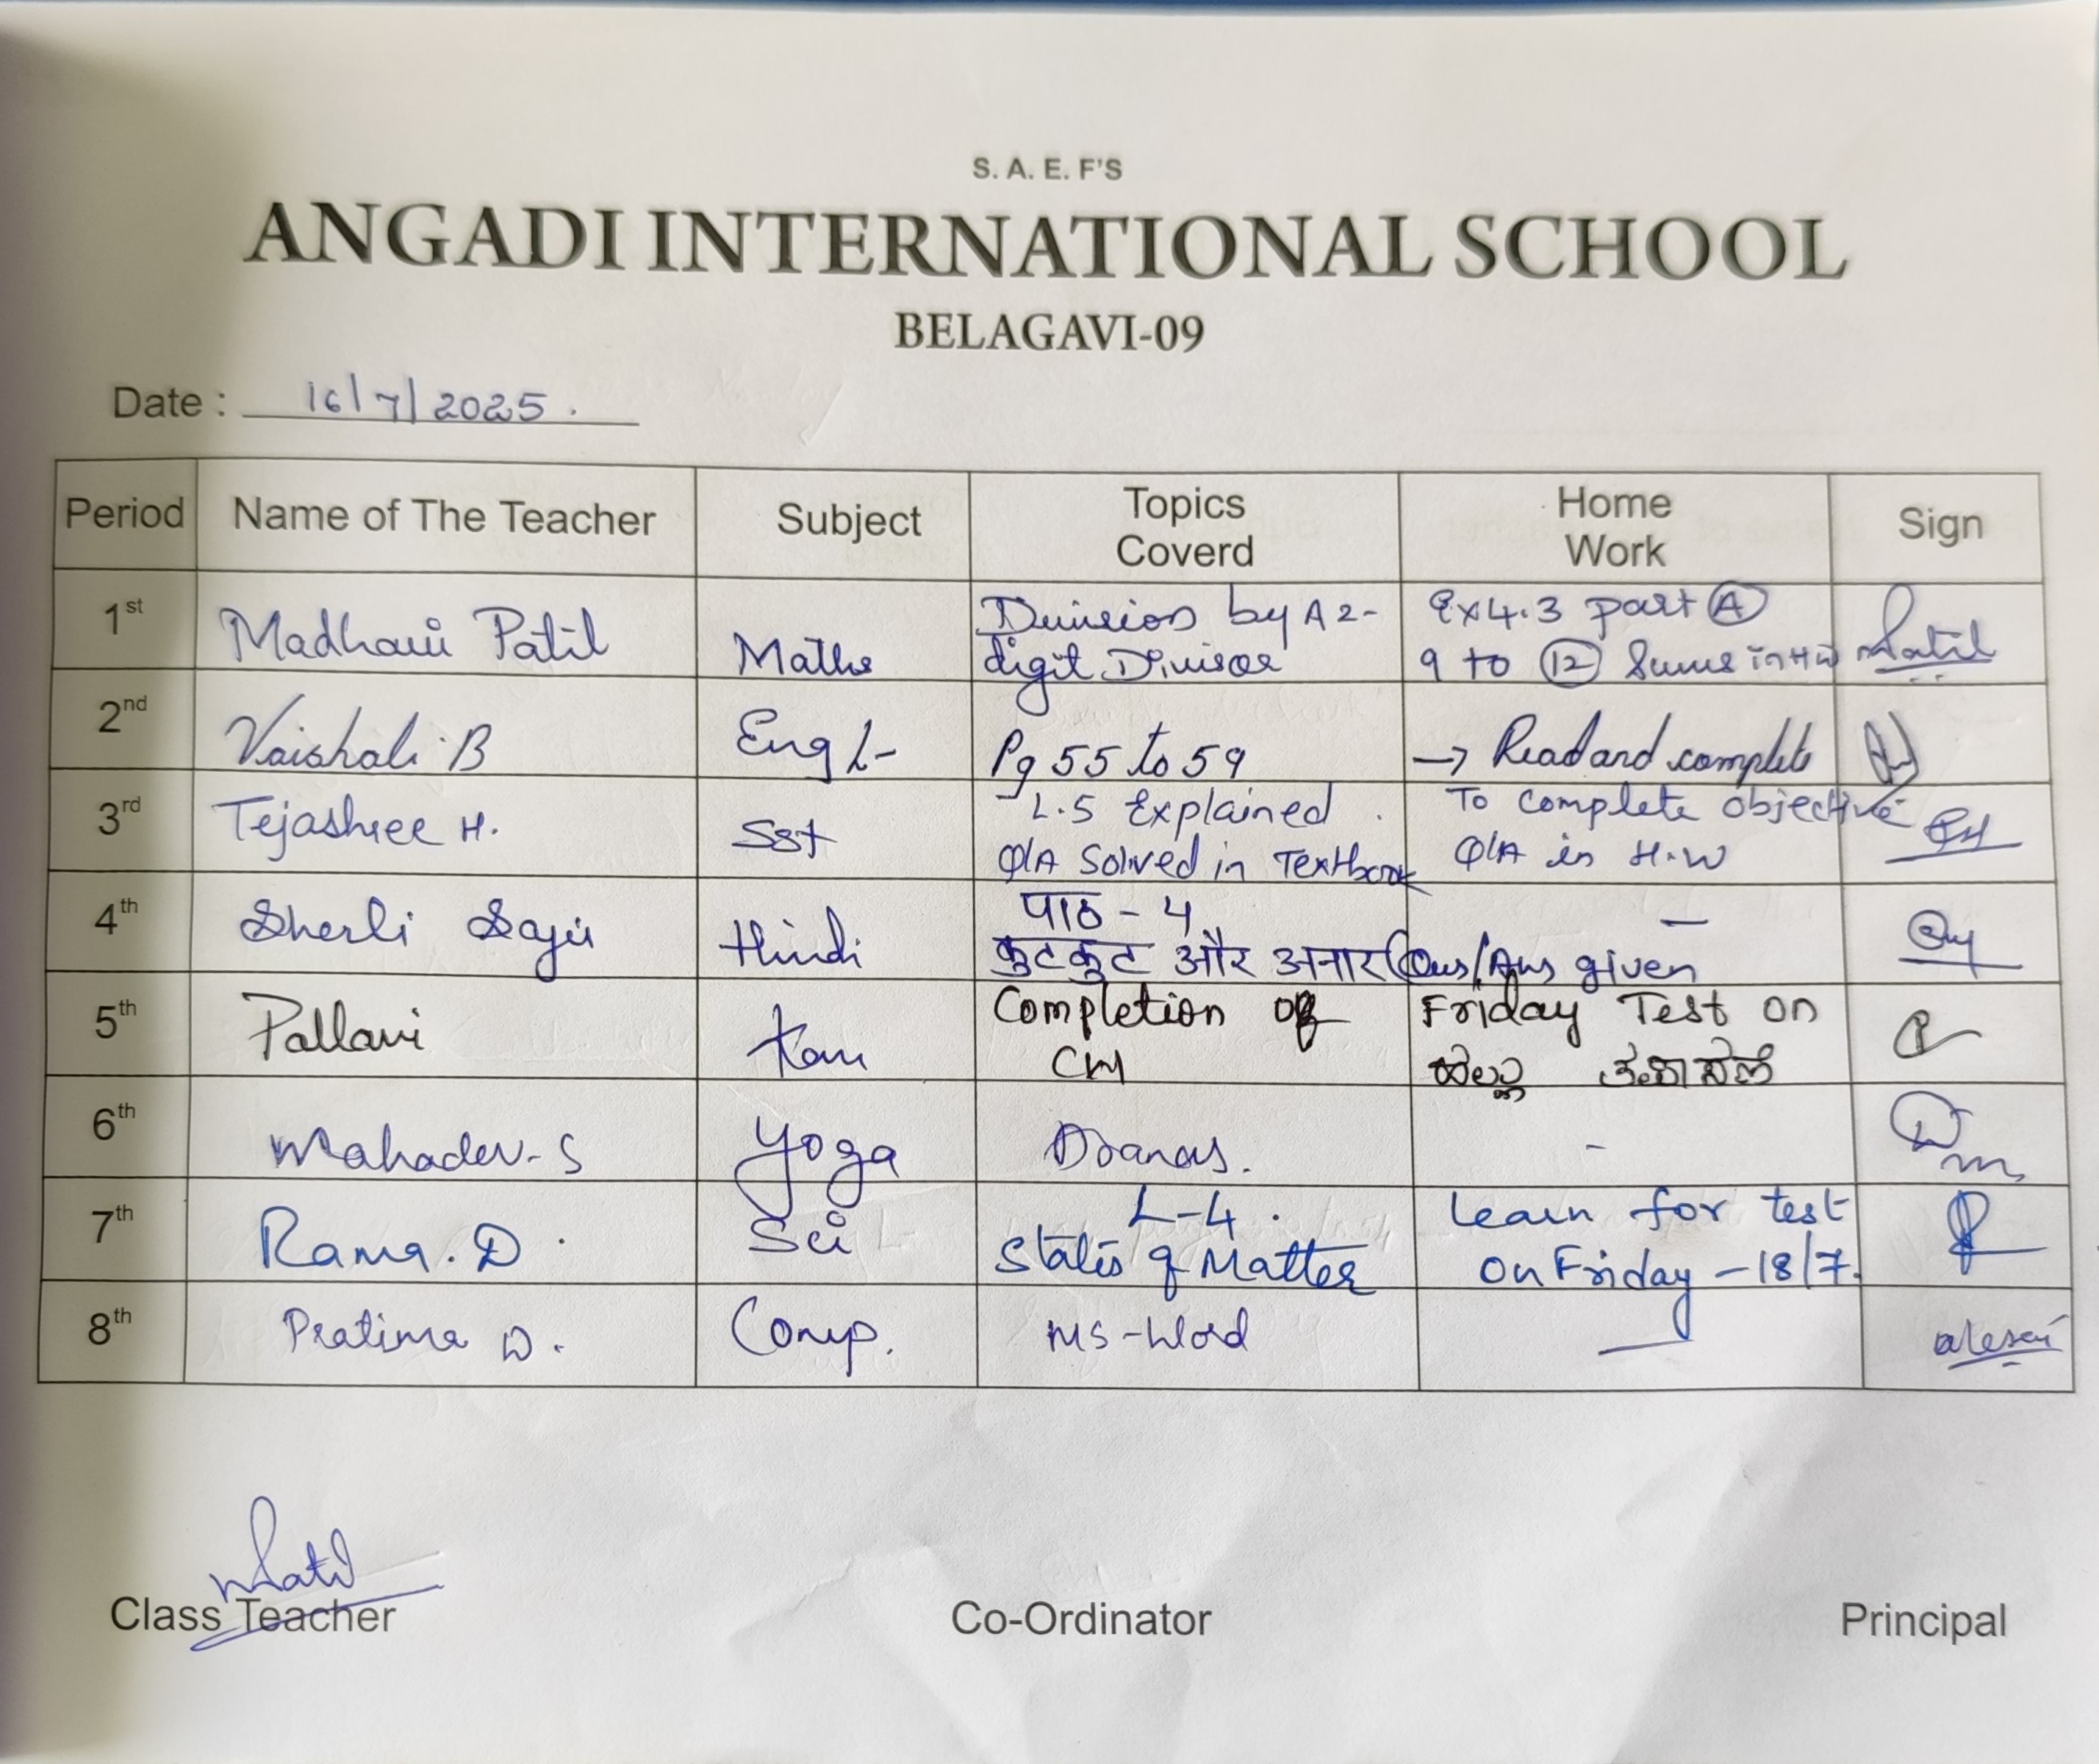 S. A. E. F'S
ANGADI INTERNATIONAL SCHOOL
BELAGAVI-09
Date : 16/7/2025.
Period Name of The Teacher Subject Topics Coverd Home Work Sign
1st Madhavi Patil Maths Division by A 2-digit Divisor Ex4.3 part A 9 to 12 Sums in HW Patil
2nd Vaishali B Eng L- Pg 55 to 59 → Read and complete
3rd Tejashree H. Sst L.5 Explained. Q/A Solved in Textbook To complete objective Q/A in H.W
4th Sherli Saju Hindi पाठ - 4 कुटकुट और अनार Qus/Ans given —
5th Pallavi Kan Completion of CW Friday Test on
6th Mahadev. S Yoga -
7th Rama. D. Sci L-4. States of Matter Learn for test on Friday - 18/7.
8th Pratima D. Comp. MS-Word —
Class Teacher Co-Ordinator Principal